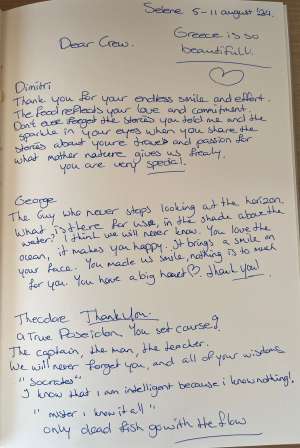 Selene 5-11 august '24.
Greece is so
beautifull.
Dear Crew.
Dimitri
Thank you for your endless smile and effort.
The food reflects your love and commitment.
Don't ever forget the stories you told me and the
sparkle in your eyes when you share the
stories about youre travels and passion for
what mother nature gives us freely.
you are very special!
George
The Guy who never stops looking at the horizon.
What is there for us, in the shade above the
water? I think we will never know. You love the
ocean, it makes you happy. It brings a smile on
your face. You made us smile, nothing is to much
for you. You have a big heart♡. thank you!
Theodore Thank You.
a True Poseidon. You set course!
The captain, the man, the teacher.
We will never forget you, and all of your wisdoms
"Socrates"
I know that I am intelligent because i know nothing!.
"mister I know it all"
only dead fish go with the flow